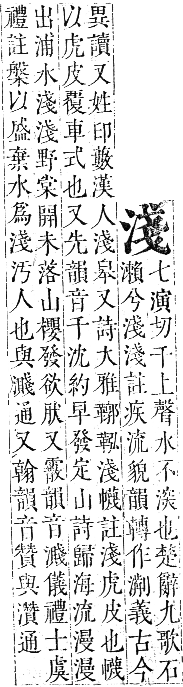 淺七演切千上聲水不㴱也楚辭九歌石
瀨兮淺淺註疾流貌韻轉作濺義古今
異讀又姓印藪漢人淺皋又詩大雅鞹鞃淺幭註淺虎皮也幭
以虎皮覆車式也又先韻音千沈約早發定山詩歸海流漫漫
出浦水淺淺野棠開未落山櫻發欲肰又霰韻音濺儀禮士虞
禮註槃以盛棄水爲淺汚人也與濺通又翰韻音贊與灒通